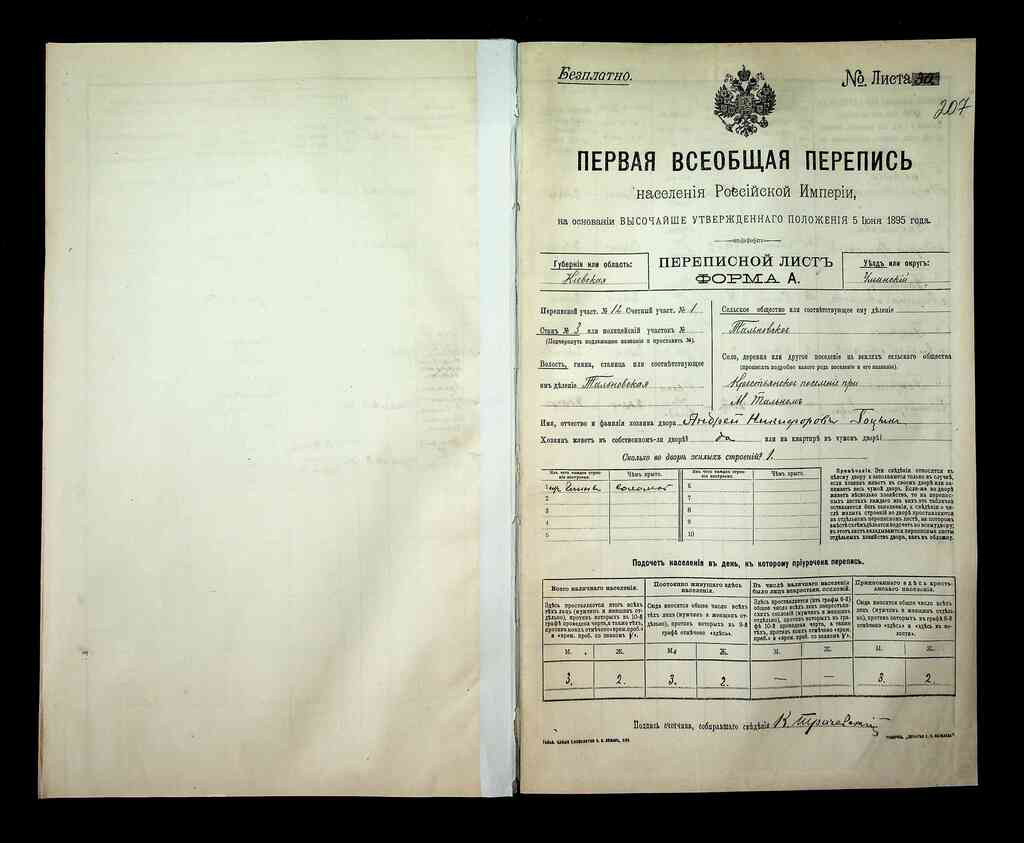 Безплатно.
№ Листа
207
ПЕРВАЯ ВСЕОБЩАЯ ПЕРЕПИСЬ
населенія Россійской Имперіи,
на основаніи ВЫСОЧАЙШЕ УТВЕРЖДЕННАГО ПОЛОЖЕНІЯ 5 Іюня 1895 года.
Губернія или область:
Кіевская
ПЕРЕПИСНОЙ ЛИСТЪ
ФОРМА А.
Уѣздъ или округъ:
Уманскій
Переписной участ. № 12 Счетный участ. № 1
Станъ № 3 или полицейскій участокъ №
(Подчеркнуть подлежащее названіе и проставить №).
Волость, гмина, станица или соотвѣтствующее
имъ дѣленіе Тальновская
Сельское общество или соотвѣтствующее ему дѣленіе
Тальновское
Село, деревня или другое поселеніе на земляхъ сельскаго общества
(прописать подробно какого рода поселеніе и его названіе).
Крестьянское поселеніе при
М. Тальномъ
Имя, отчество и фамилія хозяина двора Андрей Никифоровъ
Хозяинъ живетъ въ собственномъ-ли дворѣ? да или на квартирѣ въ чужомъ дворѣ?
Сколько во дворѣ жилыхъ строеній? 1.
Изъ чего каждое строеніе построено.
Чѣмъ крыто.
Изъ чего каждое строеніе построено.
Чѣмъ крыто.
соломой
6
2
7
3
8
4
9
5
10
Примѣчаніе. Эти свѣдѣнія относятся къ
цѣлому двору и заполняются только въ случаѣ,
если хозяинъ живетъ въ своемъ дворѣ или занимаетъ
весь чужой дворъ. Если-же во дворѣ
живетъ нѣсколько хозяйствъ, то на переписныхъ
листахъ каждаго изъ нихъ эта табличка
оставляется безъ заполненія, а свѣдѣнія о числѣ
жилыхъ строеній во дворѣ проставляются
на отдѣльномъ переписномъ листѣ, на которомъ
вмѣстѣ съ тѣмъ дѣлается подсчетъ по всему двору;
въ этотъ листъ вкладываются переписные листы
отдѣльныхъ хозяйствъ двора, какъ въ обложку.
Подсчетъ населенія въ день, къ которому пріурочена перепись.
Всего наличнаго населенія.
Постоянно живущаго здѣсь населенія.
Въ числѣ наличнаго населенія было лицъ некрестьянск. сословій.
Приписаннаго здѣсь крестьянскаго населенія.
Здѣсь проставляется итогъ всѣхъ
тѣхъ лицъ (мужчинъ и женщинъ отдѣльно),
противъ которыхъ въ 10-й
графѣ проведена черта, а также тѣхъ,
противъ коихъ отмѣчено «врем. проб.»
Сюда вносится общее число всѣхъ
тѣхъ лицъ (мужчинъ и женщинъ отдѣльно),
противъ которыхъ въ 9-й
графѣ отмѣчено «здѣсь».
Сюда вносится общее число всѣхъ
тѣхъ лицъ (мужчинъ и женщинъ отдѣльно),
противъ которыхъ въ графѣ 8-й
отмѣчено «здѣсь» и «здѣсь въ волости».
М. Ж. М. Ж. М. Ж. М. Ж.
3. 2. 3. 2. — — 3. 2.
Подпись счетчика, собиравшаго свѣдѣнія